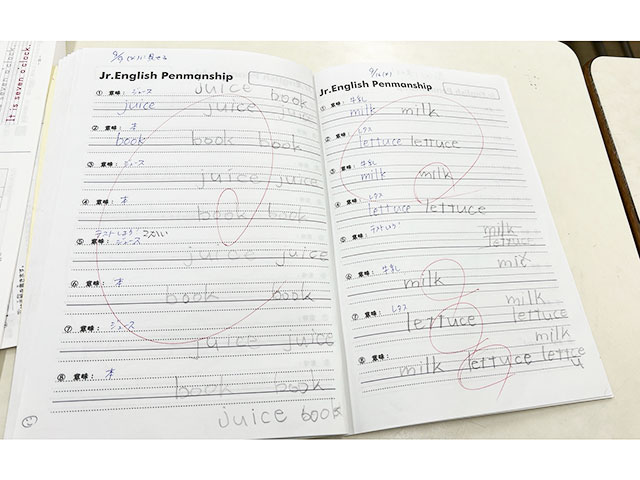 It is seven o'clock.
Jr.English Penmanship
juice
book
① 意味： ジュース
juice juice
② 意味： 本
book book book
③ 意味： ジュース
juice juice
④ 意味： 本
book book
⑤ 意味： ジュース
juice juice
⑥ 意味： 本
book book
⑦ 意味： ジュース
juice juice
⑧ 意味： 本
book book
juice book
Jr.English Penmanship
① 意味： 牛乳
milk milk
② 意味： レタス
lettuce lettuce
③ 意味： 牛乳
milk milk
④ 意味： レタス
lettuce lettuce
⑤ 意味：
milk
lettuce
⑥ 意味： 牛乳
milk
milk
⑦ 意味： レタス
lettuce lettuce
milk
⑧ 意味：
milk lettuce lettuce